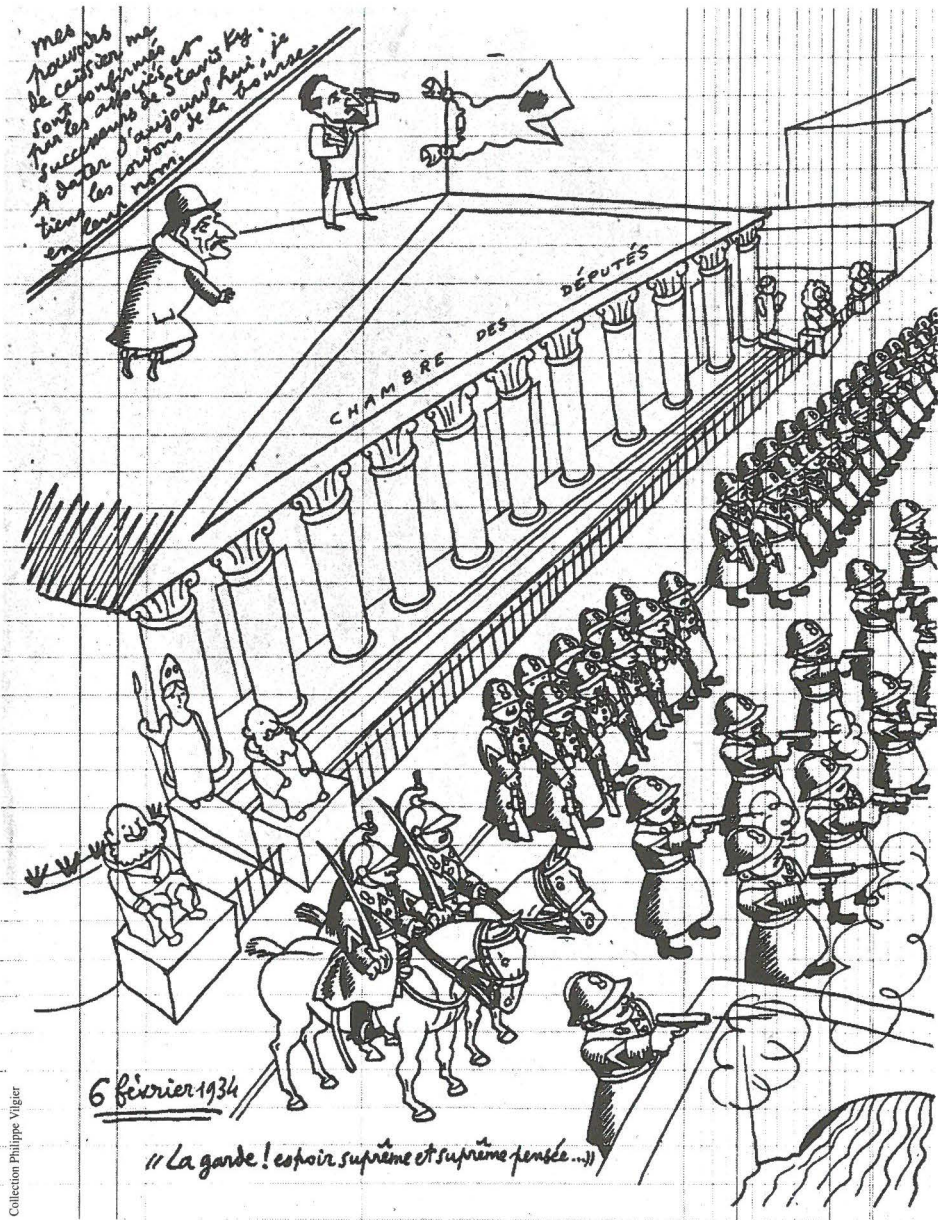 mes
pouvoirs
de caissier me
sont confirmés
par les associés et
successeurs de Stavisky.
A dater d'aujourd'hui, je
tiens les cordons de la bourse
en leur nom.
CHAMBRE DES DÉPUTÉS
6 février 1934
"La garde! espoir suprême et suprême pensée..."
Collection Philippe Vilgier